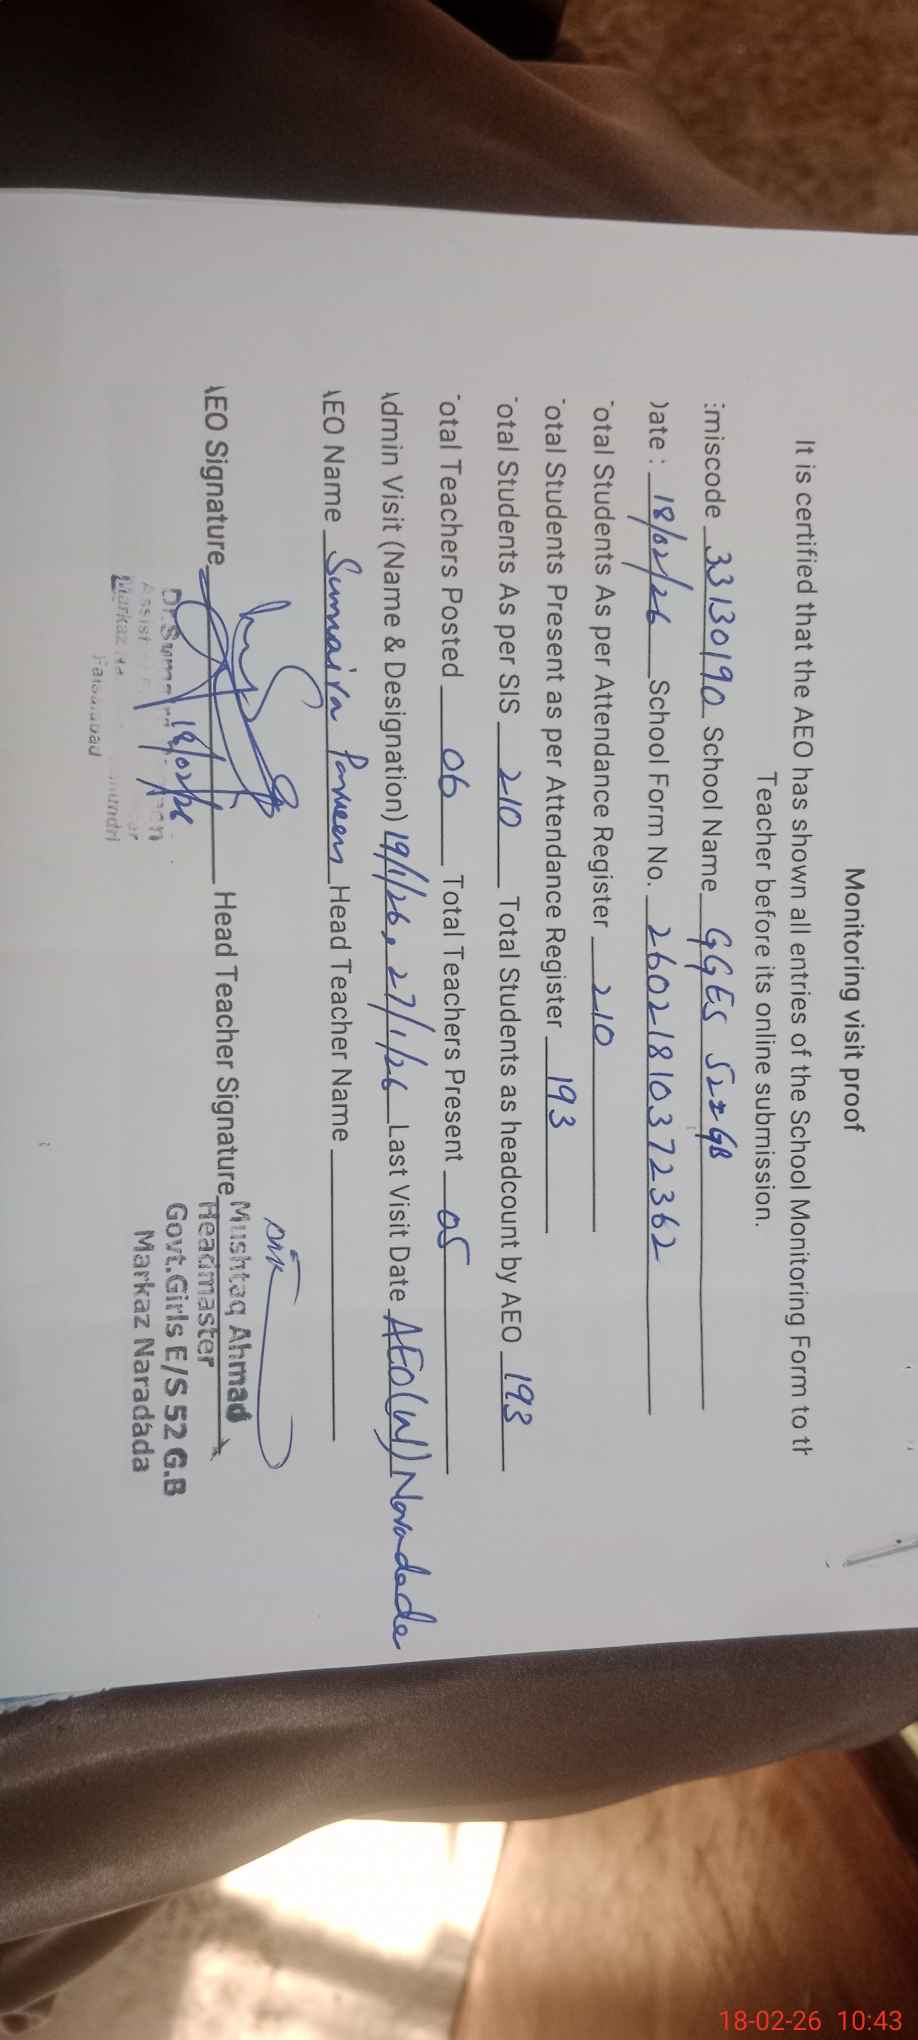 Monitoring visit proof
It is certified that the AEO has shown all entries of the School Monitoring Form to th
Teacher before its online submission.
:miscode 33130190 School Name GGES 52 GB
Date : 18/02/26 School Form No. 26021810372362
Total Students As per Attendance Register 210
Total Students Present as per Attendance Register 193
Total Students As per SIS 210 Total Students as headcount by AEO 193
Total Teachers Posted 06 Total Teachers Present 05
Admin Visit (Name & Designation) 19/1/26, 27/1/26 Last Visit Date AEO(W) Naradada
AEO Name Sumaira Parveen Head Teacher Name
AEO Signature Head Teacher Signature
18/02/26
Mushtaq Ahmad
Headmaster
Govt.Girls E/S 52 G.B
Markaz Naradada
Dr.Suma
Assist
Markaz Na
18-02-26 10:43